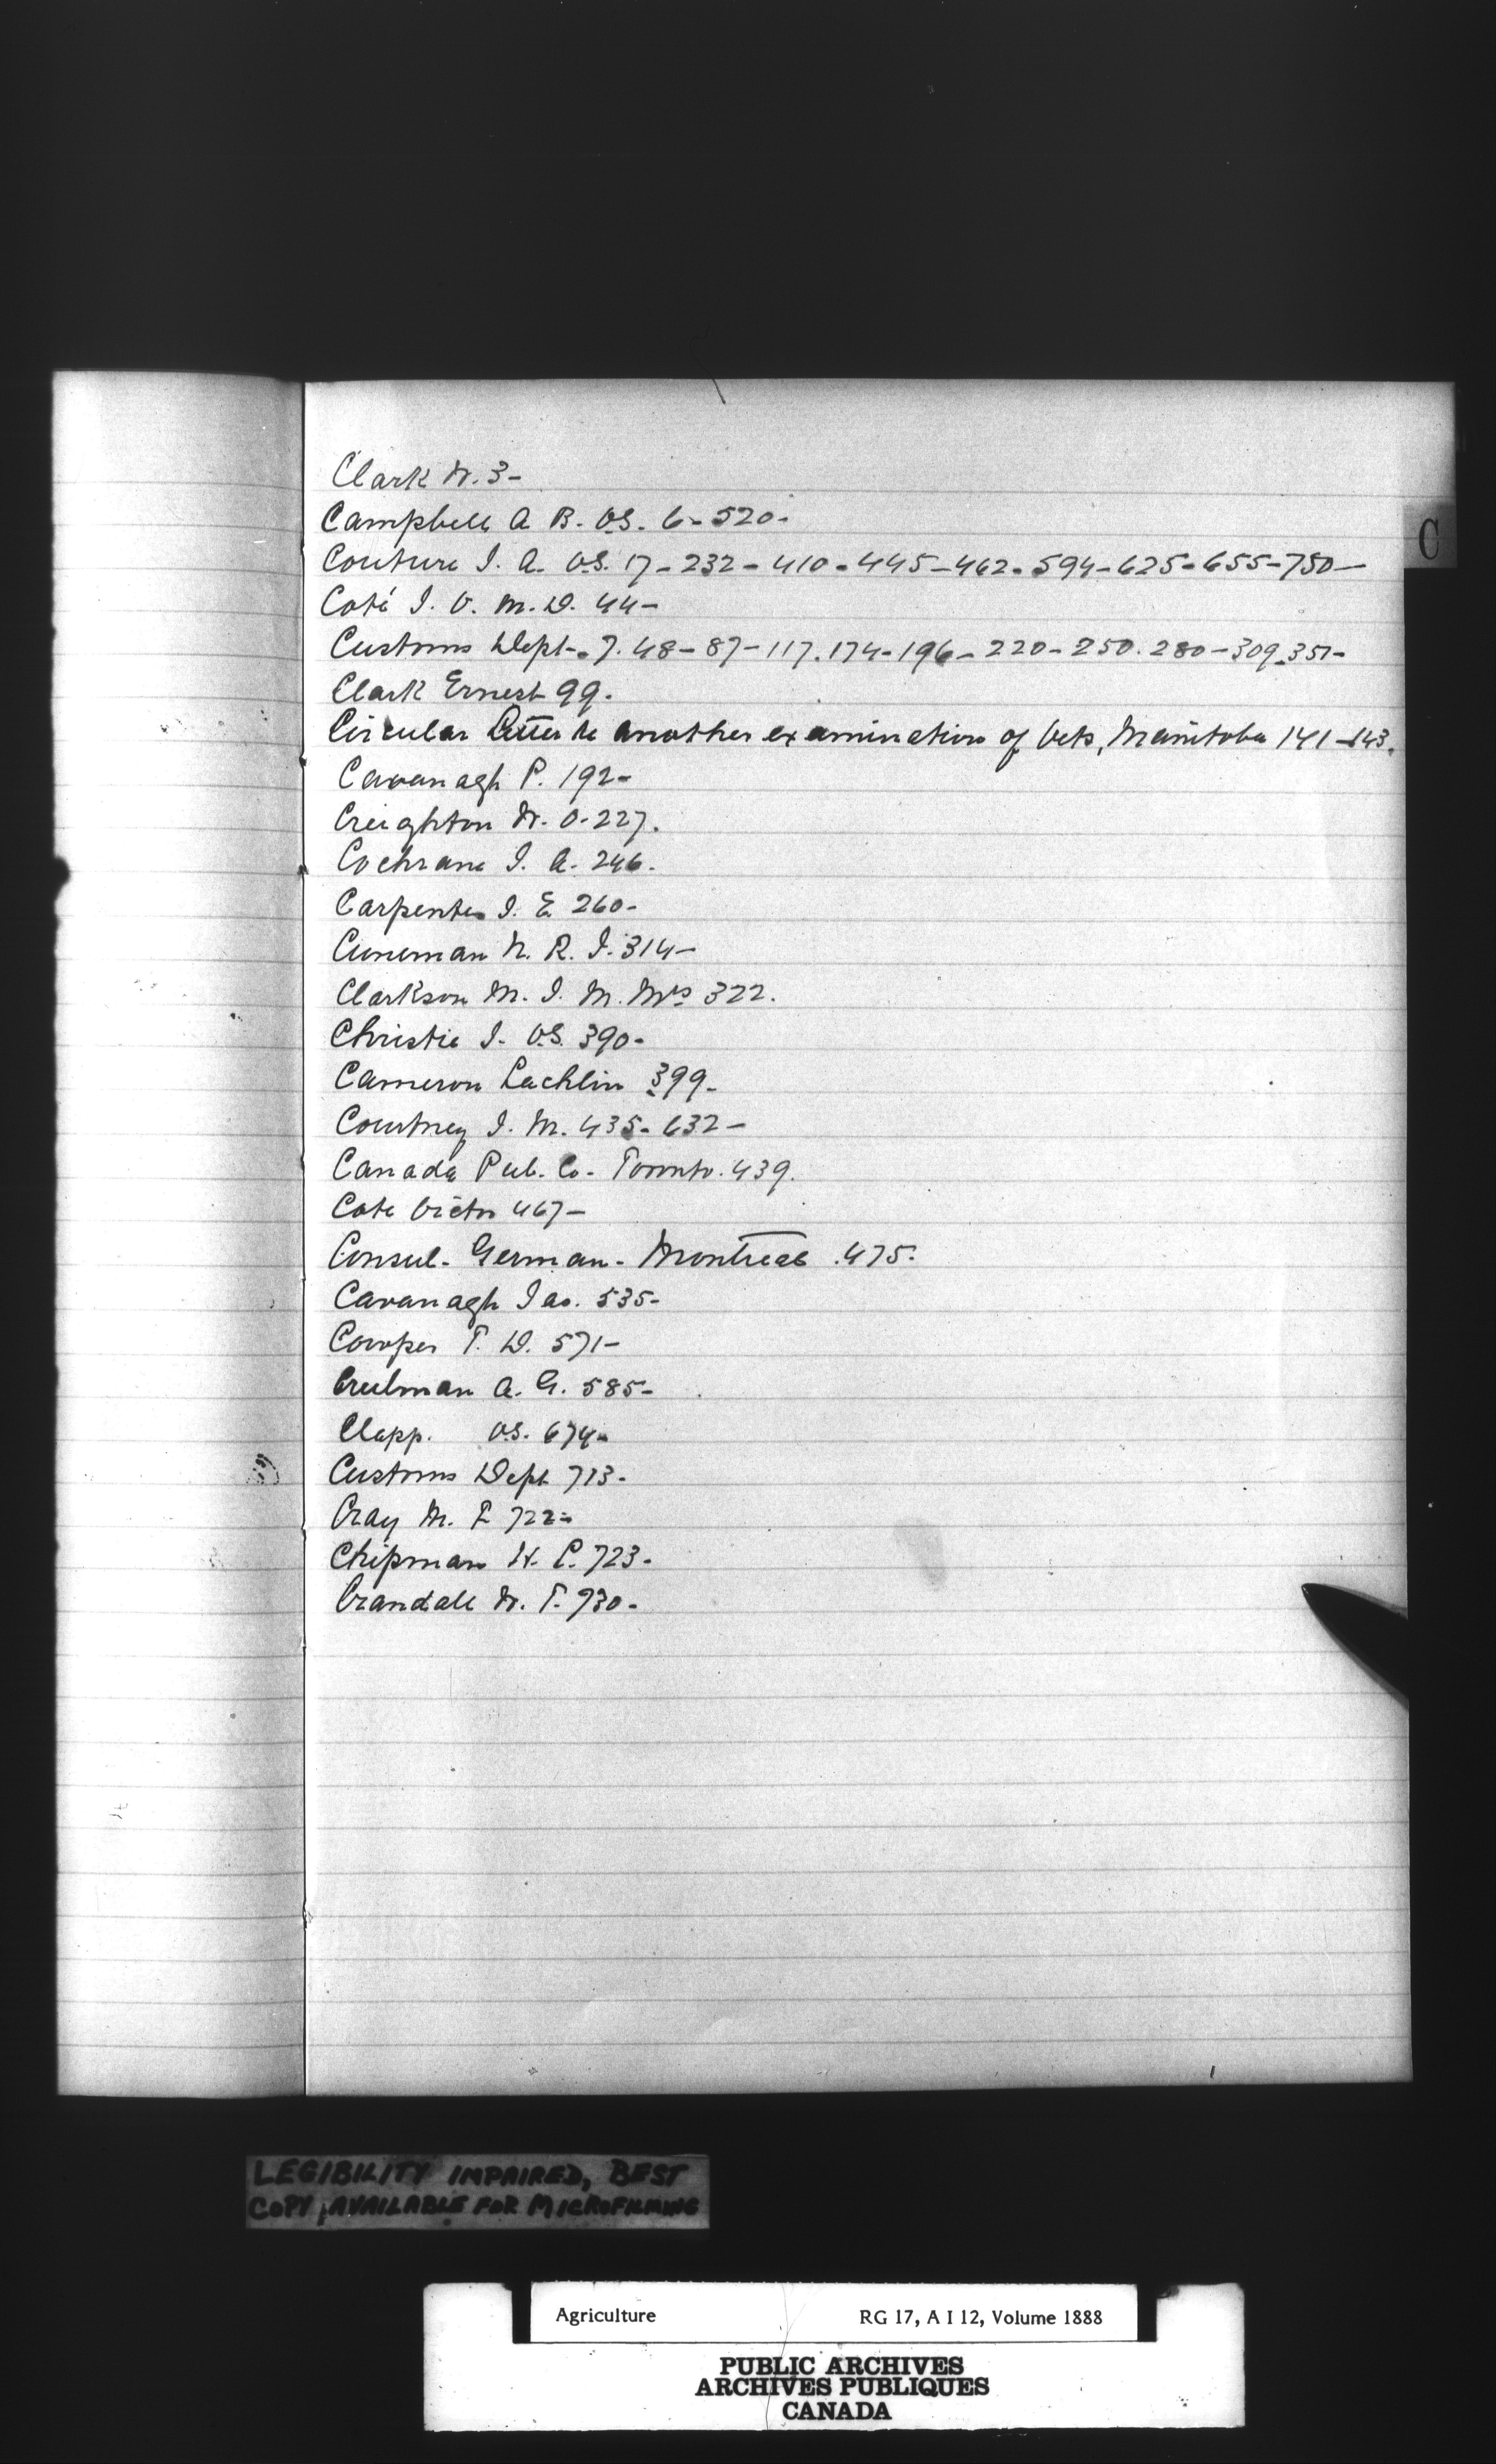 C
Clark W. 3-
Campbell A B. V.S. 6-520-
Couture J. A. V.S. 17-232-410-445-462-594-625-655-750-
Coté J. O. M.D. 44-
Customs Dept. 7. 48-87-117.174-196-220-250.280-309.351-
Clark Ernest 99.
Circular Letter re another examination of Vets, Manitoba 141-143.
Cavanagh P. 192-
Creighton W. O. 227.
Cochrane J. A. 246.
Carpenter J. E 260-
N. R. J. 314-
Clarkson M. J. M. Mrs 322.
Christie J. V.S. 390-
Cameron Lachlin 399-
Courtney J. M. 435-632-
Canada Pub. Co. Toronto. 439.
Cote Victor 467-
Consul. German. Montreal .475.
Cavanagh Jas. 535-
Cowper T. D. 571-
A. G. 585-
Clapp. V.S. 674-
Customs Dept 713-
Cray M. F 722-
Chipman H. C. 723-
Crandall W. T. 730-
LEGIBILITY IMPAIRED, BEST
COPY AVAILABLE FOR MICROFILMING
Agriculture RG 17, A I 12, Volume 1888
PUBLIC ARCHIVES
ARCHIVES PUBLIQUES
CANADA